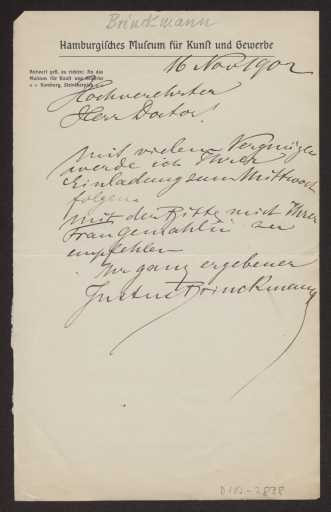 Brinckmann
Hamburgisches Museum für Kunst und Gewerbe
Antwort gefl. zu richten: An das
Museum für Kunst und Gewerbe
Hamburg, Steintorplatz
16 Nov 1902
Hochverehrter
Herr Doctor!
Mit vielem Vergnügen
werde ich Ihrer
Einladung zum Mittwoch
folgen.
Mit der Bitte mich Ihrer
Frau Gemahlin zu
empfehlen
Ihr ganz ergebener
Justus Brinckmann